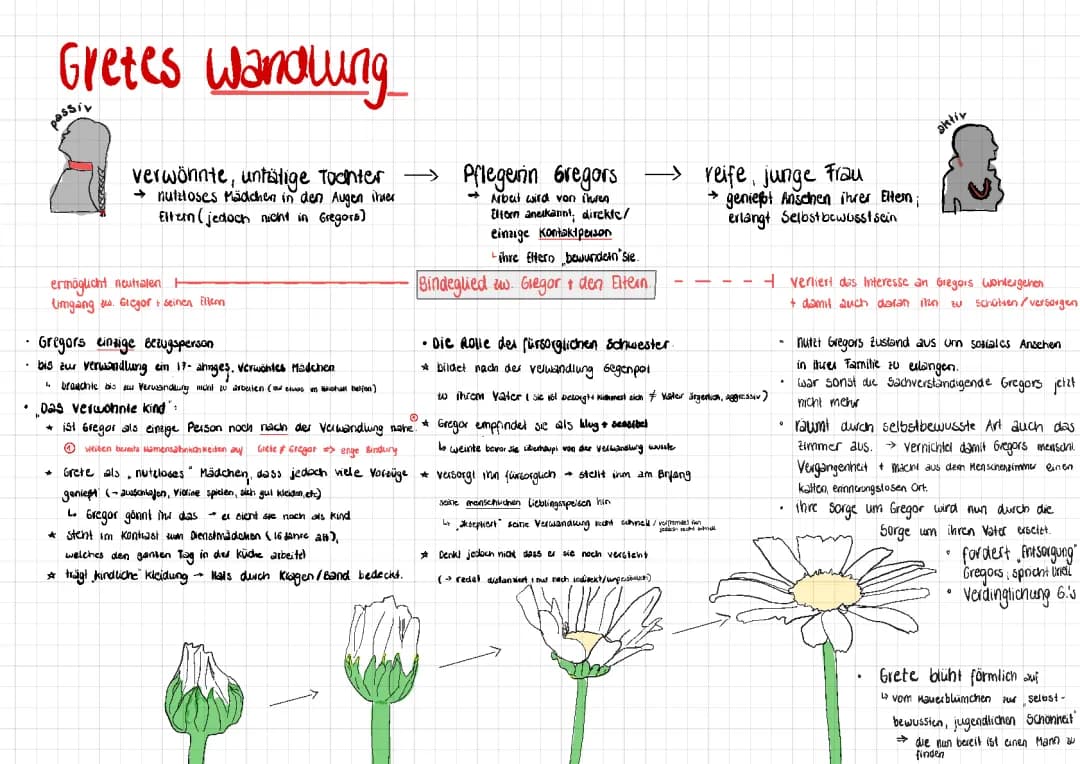 Gretes Wandlung
passiv
aktiv
verwöhnte, untätige Tochter →
→ nutzloses Mädchen in den Augen ihrer
Eltern (jedoch nicht in Gregors)
Pflegerin Gregors →
→ Arbeit wird von ihren
Eltern anerkannt; direkte/
einzige Kontaktperson
↳ ihre Eltern „bewundern" sie.
reife, junge Frau
→ genießt Ansehen ihrer Eltern;
erlangt Selbstbewusstsein
ermöglicht neutralen
Umgang zw. Gregor + seinen Eltern
Bindeglied zw. Gregor + den Eltern.
verliert das Interesse an Gregors Wohlergehen
+ damit auch daran ihn zu schützen/versorgen
• Gregors einzige Bezugsperson
• bis zur Verwandlung ein 17-jähriges, verwöhntes Mädchen
↳ brauchte bis zur Verwandlung nicht zu arbeiten (nur etwas im Haushalt helfen)
• „Das verwöhnte Kind":
★ ist Gregor als einzige Person noch nach der Verwandlung nahe.
① weisen bereits Namensähnlichkeiten auf Grete / Gregor => enge Bindung
★ Grete als „nutzloses" Mädchen, dass jedoch viele Vorzüge
genießt (→ ausschlafen, Violine spielen, sich gut kleiden, etc)
↳ Gregor gönnt ihr das → er sieht sie noch als Kind
★ steht im Kontrast zum Dienstmädchen (16 Jahre alt),
welches den ganzen Tag in der Küche arbeitet
★ trägt „kindliche" Kleidung → Hals durch Kragen/Band bedeckt.
• Die Rolle der fürsorglichen Schwester.
★ bildet nach der Verwandlung Gegenpol
zu ihrem Vater (sie ist besorgt + kümmert sich ≠ Vater ärgerlich, aggressiv)
①
★ Gregor empfindet sie als klug + sensibel
↳ weinte bevor sie überhaupt von der Verwandlung wusste
★ versorgt ihn fürsorglich → stellt ihm am Anfang
seine menschlichen Lieblingsspeisen hin
↳ „akzeptiert" seine Verwandlung recht schnell /
★ Denkt jedoch nicht dass er sie noch versteht
(→ redet distanziert + nur noch indirekt/unpersönlich)
• nutzt Gregors Zustand aus um soziales Ansehen
in ihrer Familie zu erlangen.
• war sonst die Sachverständigende Gregors jetzt
nicht mehr
• räumt durch selbstbewusste Art auch das
Zimmer aus. → vernichtet damit Gregors menschl.
Vergangenheit + macht aus dem Menschenzimmer einen
kalten, erinnerungslosen Ort.
• Ihre Sorge um Gregor wird nun durch die
Sorge um ihren Vater ersetzt.
• fordert „Entsorgung"
Gregors, spricht Urteil
• Verdinglichung G.'s
• Grete blüht förmlich auf
↳ vom Mauerblümchen zur „selbst-
bewussten, jugendlichen Schönheit"
⇒ die nun bereit ist einen Mann zu
finden